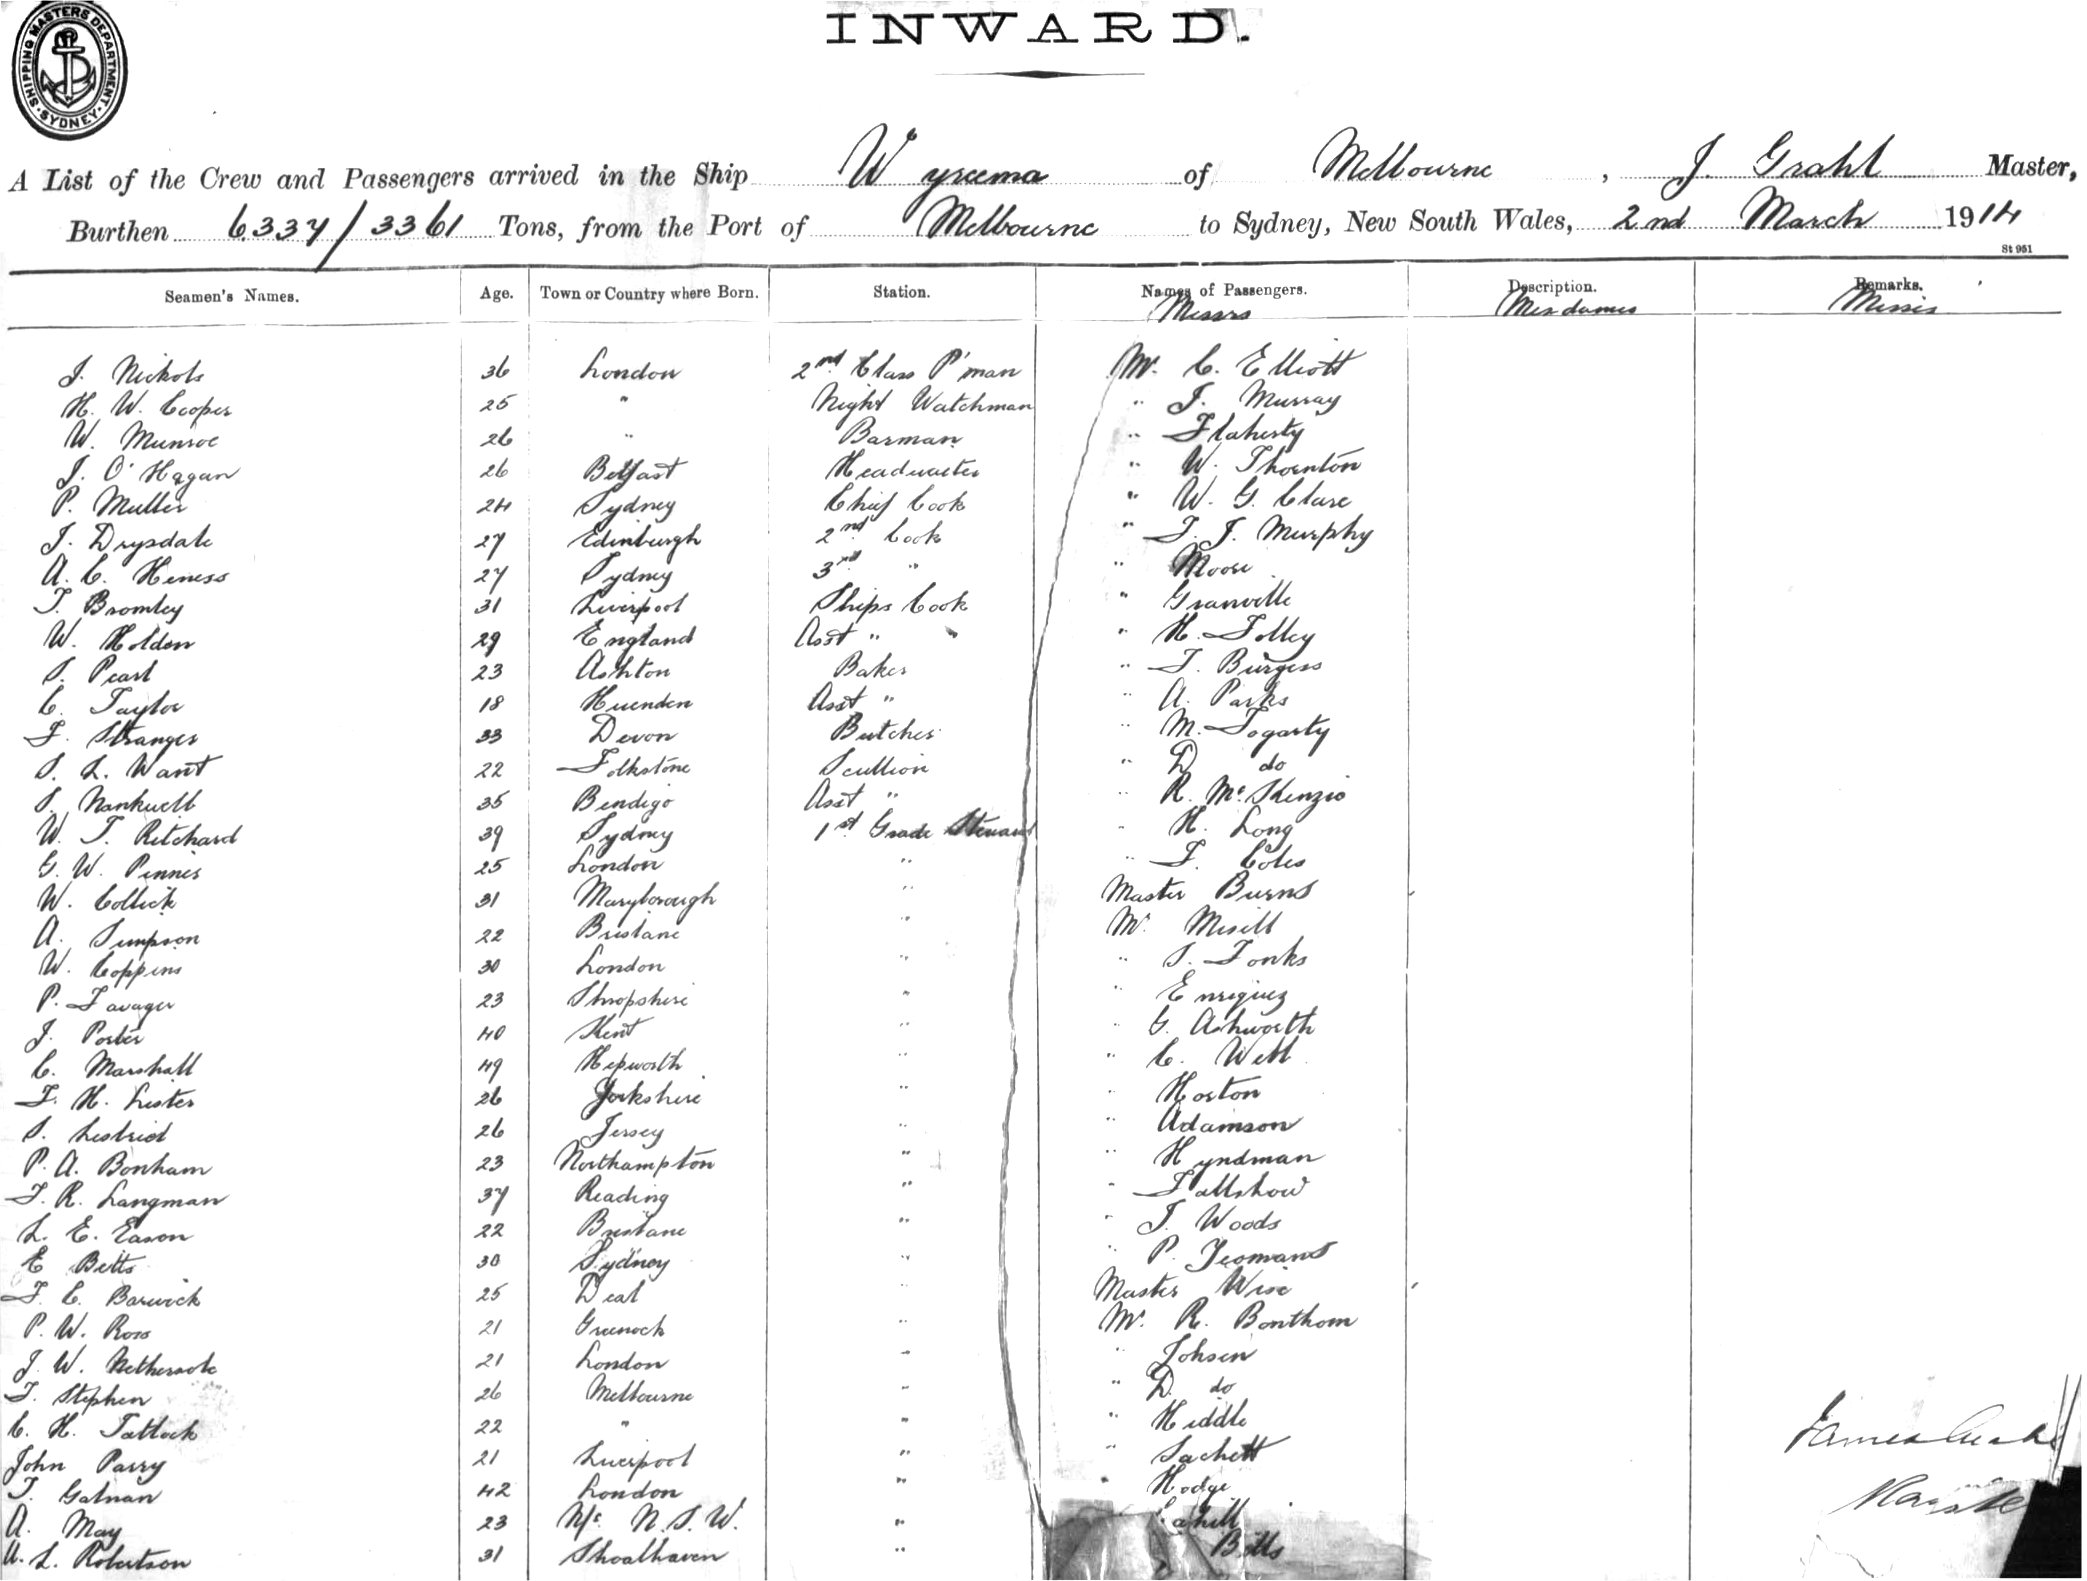 SHIPPING MASTERS DEPARTMENT · SYDNEY ·
INWARD.
A List of the Crew and Passengers arrived in the Ship Wyreema of Melbourne, J. Grahl Master,
Burthen 6337/3361 Tons, from the Port of Melbourne to Sydney, New South Wales, 2nd March 1914
St 951
Seamen's Names. Age. Town or Country where Born. Station. Names of Passengers. Description. Remarks.
Messrs Mesdames Misses
J. Nickols 36 London 2nd Class P'man Mr. C. Elliott
H. W. Cooper 25 " Night Watchman " J. Murray
W. Munroe 26 " Barman " Flaherty
J. O'Hagan 26 Belfast Headwaiter " W. Thornton
P. Muller 24 Sydney Chief Cook " W. G. Clare
J. Drysdale 27 Edinburgh 2nd Cook " T. J. Murphy
A. C. Heness 27 Sydney 3rd " " Moore
T. Bromley 31 Liverpool Ships Cook " Granville
W. Holden 29 England Asst " " H. Folley
S. Pearl 23 Ashton Baker " F. Burgess
C. Taylor 18 Asst " " A. Parks
F. Stranger 33 Devon Butcher " M. Fogarty
S. L. Want 22 Folkstone Scullion " D do
S. Nankivell 35 Bendigo Asst " " R. McKenzie
W. T. Ritchard 39 Sydney 1st Grade Steward " H. Long
G. W. Pinnis 25 London " " F. Coles
W. Collick 31 Maryborough " Master Burns
A. Simpson 22 Brisbane " Mr.
W. Coppins 30 London " " S. Tonks
P. 23 Shropshire " " Enriquez
J. Porter 40 Kent " " G. Ashworth
C. Marshall 49 Hepworth " " C. Webb
F. H. Lister 26 Yorkshire " " Horton
S. 26 Jersey " " Adamson
P. A. Bonham 23 Northampton " " Hyndman
F. R. Langman 37 Reading " " Fallshow
L. E. Eason 22 Brisbane " " J. Woods
E Betts 30 Sydney " " P. Yeomans
F. C. Barwick 25 Deal " Master Wise
P. W. Ross 21 Greenock " Mr. R. Bonthom
J. W. Nethersole 21 London " " Johsen
F. Stephen 26 Melbourne " " D. do
C. H. Tatlock 22 " " " Hiddle
John Parry 21 Liverpool " " Sachett
T. Galnan 42 London " " Hodge
A. May 23 N/c N.S.W. " Cahill
A. L. Robertson 31 Shoalhaven " Betts
James